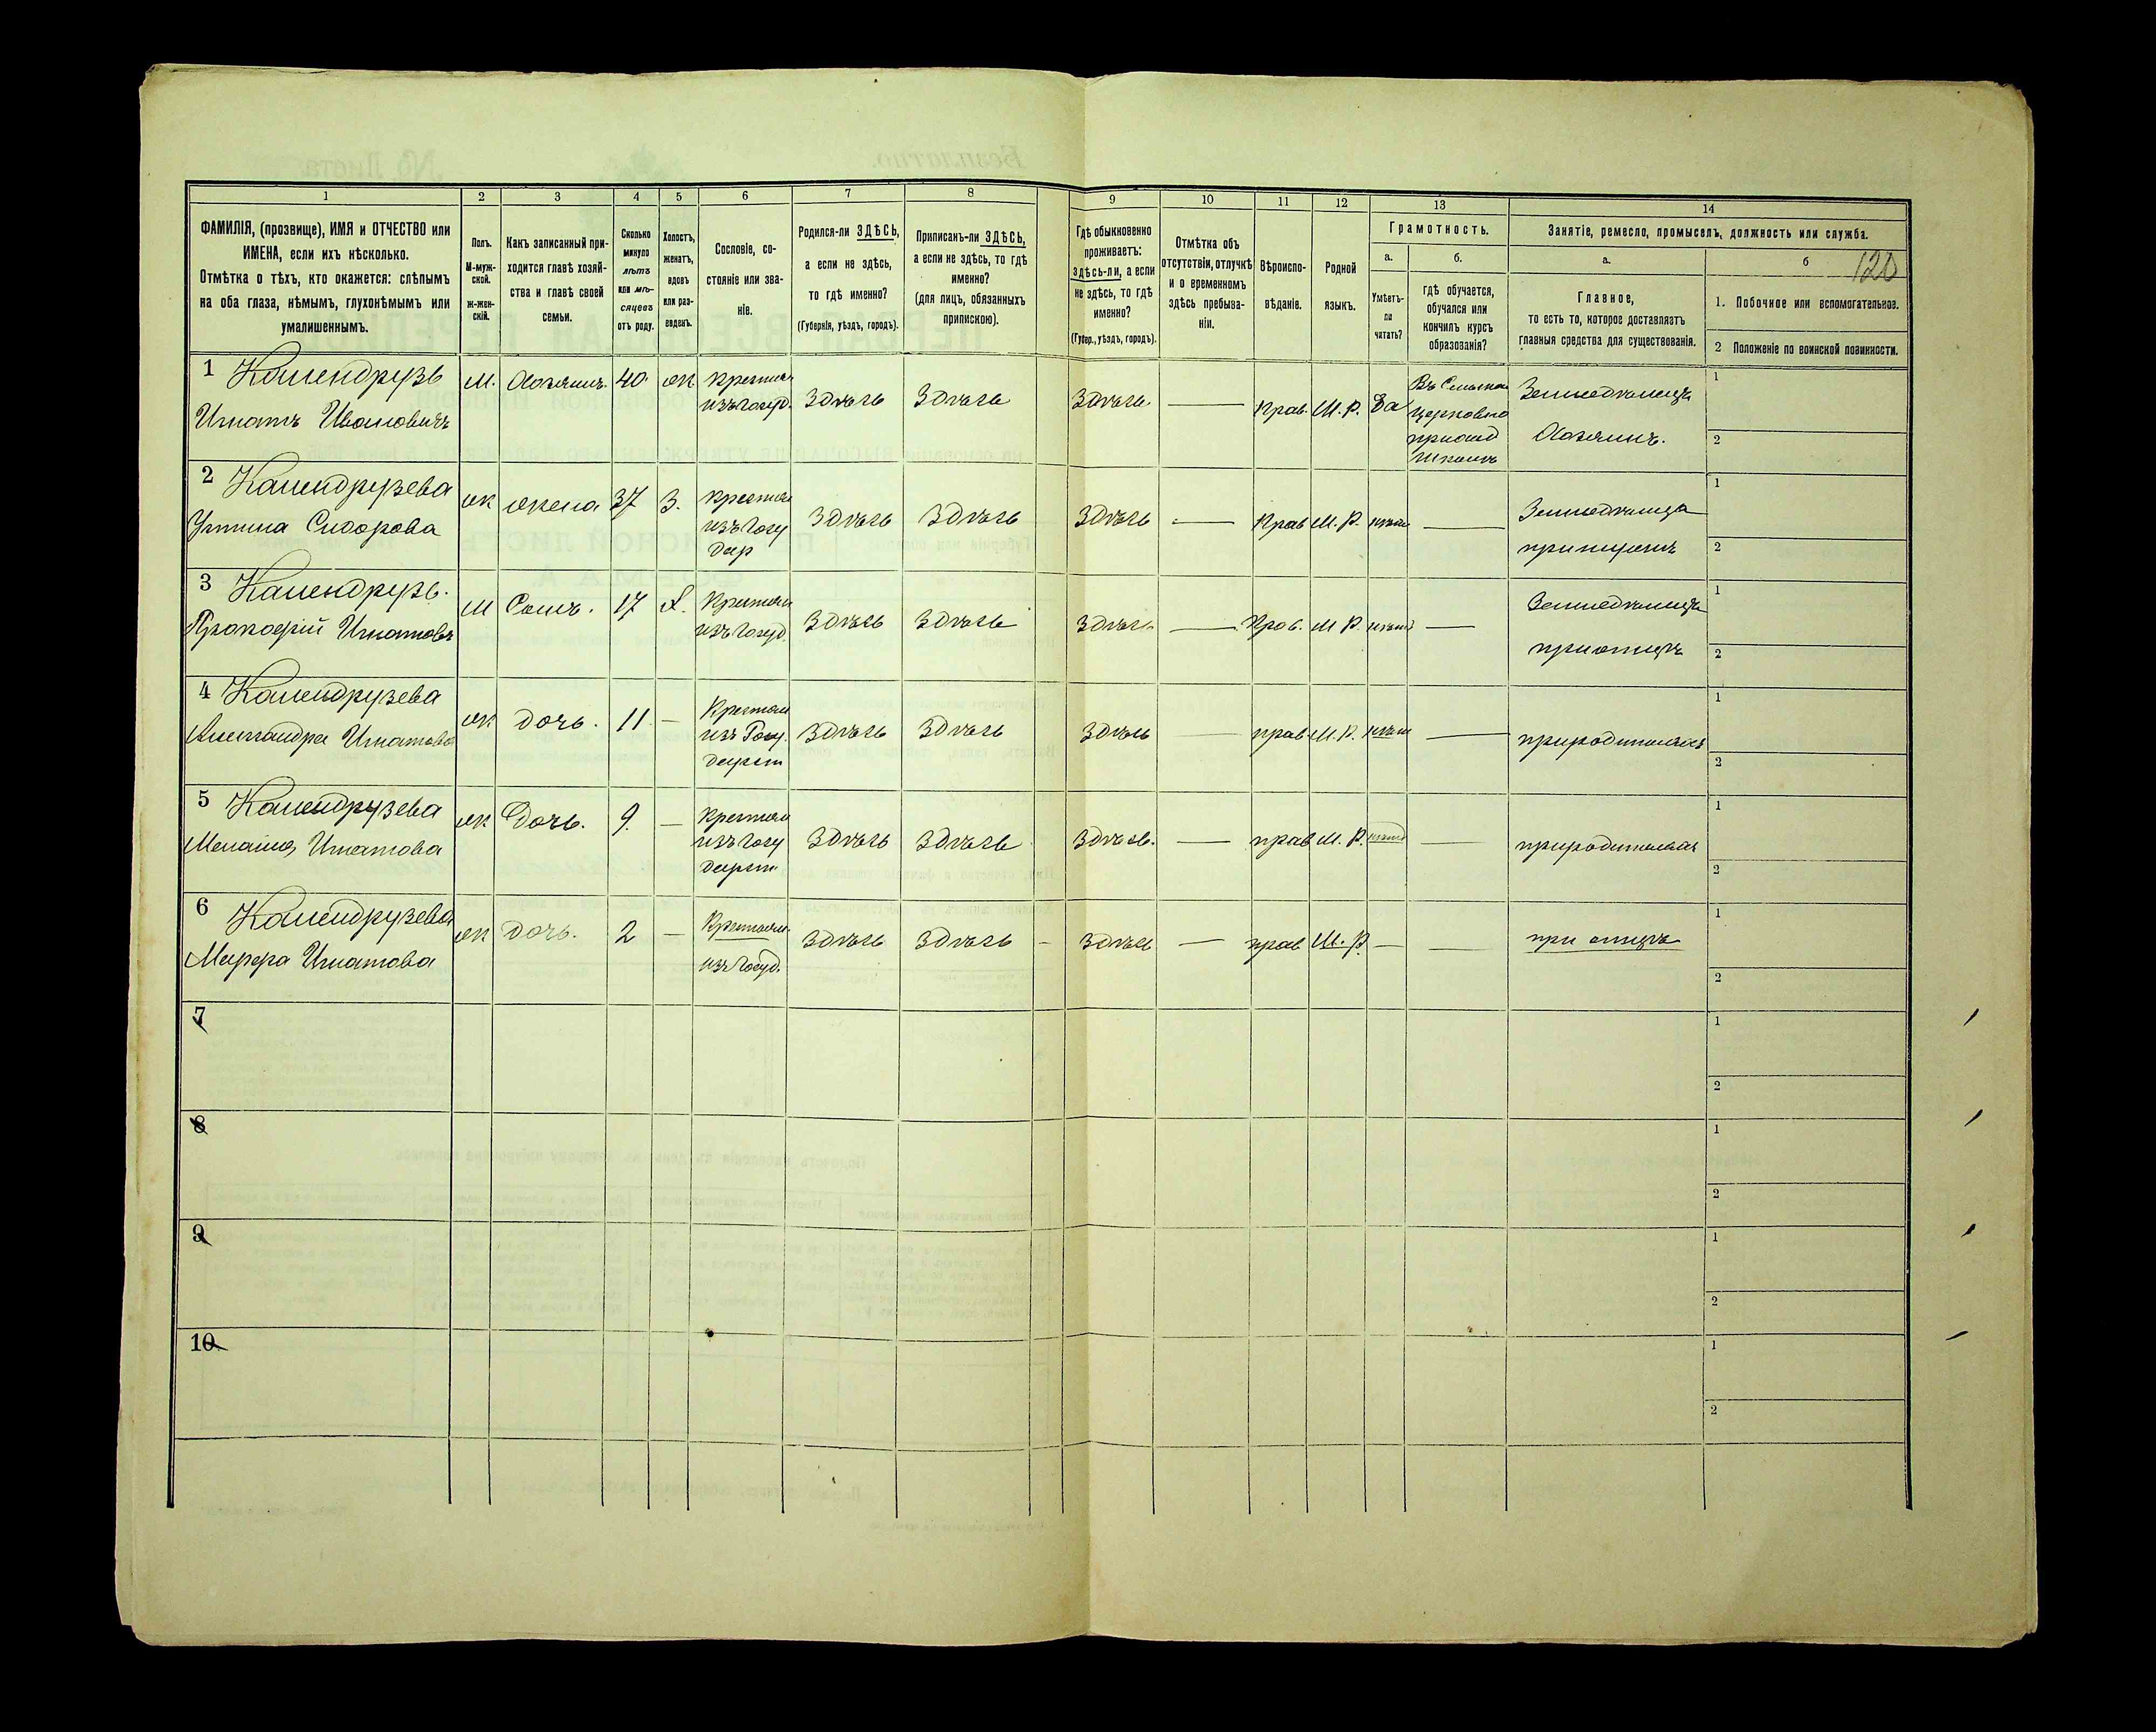 1
2
3
4
5
6
7
8
9
10
11
12
13
14
ФАМИЛІЯ, (прозвище), ИМЯ и ОТЧЕСТВО или
ИМЕНА, если ихъ нѣсколько.
Отмѣтка о тѣхъ, кто окажется: слѣпымъ
на оба глаза, нѣмымъ, глухонѣмымъ или
умалишеннымъ.
Полъ.
М-муж-
ской.
Ж-жен-
скій.
Какъ записанный при-
ходится главѣ хозяй-
ства и главѣ своей
семьи.
Сколько
минуло
лѣтъ
или мѣ-
сяцевъ
отъ роду.
Холостъ,
женатъ,
вдовъ
или раз-
веденъ.
Сословіе, со-
стояніе или зва-
ніе.
Родился-ли ЗДѢСЬ,
а если не здѣсь,
то гдѣ именно?
(Губернія, уѣздъ, городъ).
Приписанъ-ли ЗДѢСЬ,
а если не здѣсь, то гдѣ
именно?
(для лицъ, обязанныхъ
припискою).
Гдѣ обыкновенно
проживаетъ:
здѣсь-ли, а если
не здѣсь, то гдѣ
именно?
(Губер., уѣздъ, городъ).
Отмѣтка объ
отсутствіи, отлучкѣ
и о временномъ
здѣсь пребыва-
ніи.
Вѣроиспо-
вѣданіе.
Родной
языкъ.
Грамотность.
а.
Умѣетъ-
ли
читать?
б.
гдѣ обучается,
обучался или
кончилъ курсъ
образованія?
Занятіе, ремесло, промыселъ, должность или служба.
а.
Главное,
то есть то, которое доставляетъ
главныя средства для существованія.
б
120
1. Побочное или вспомогательное.
2 Положеніе по воинской повинности.
1
Игнатъ Ивановичъ
М.
Хозяинъ.
40
ж
Крестьян
изъ Госуд.
Здѣсь
Здѣсь
Здѣсь
—
прав.
М. Р.
Да
Въ Сельской
церковно
приход
школѣ
Земледѣлецъ
Хозяинъ.
1
2
2
Устина Сидорова
ж
жена
37
З.
Крестьян
изъ Госу
дар
Здѣсь
Здѣсь
Здѣсь
—
Прав
М. Р.
нѣтъ
—
Земледѣлица
при мужѣ
1
2
3
Прокофій Игнатовъ
М
Сынъ.
17
Х.
Крестьян
изъ Госуд.
Здѣсь
Здѣсь
Здѣсь
—
Прав.
М Р.
нѣтъ
—
Земледѣлецъ
при отцѣ
1
2
4
Александра Игнатова
ж
дочь.
11
—
Крестьян
изъ Госу.
дарст
Здѣсь
Здѣсь
Здѣсь
—
прав
М. Р.
нѣтъ
—
при родителяхъ
1
2
5
Меланія Игнатова
ж
Дочь.
9.
—
Крестьян
изъ Госу
дарст
Здѣсь
Здѣсь
Здѣсь.
—
прав
М. Р.
нѣтъ
—
при родителях
1
2
6
Марфа Игнатова
ж
дочь.
2
—
Крестьян.
изъ Госуд.
Здѣсь
Здѣсь
Здѣсь
—
прав
М. Р.
—
—
при отцѣ
1
2
7
1
2
8
1
2
9
1
2
10
1
2